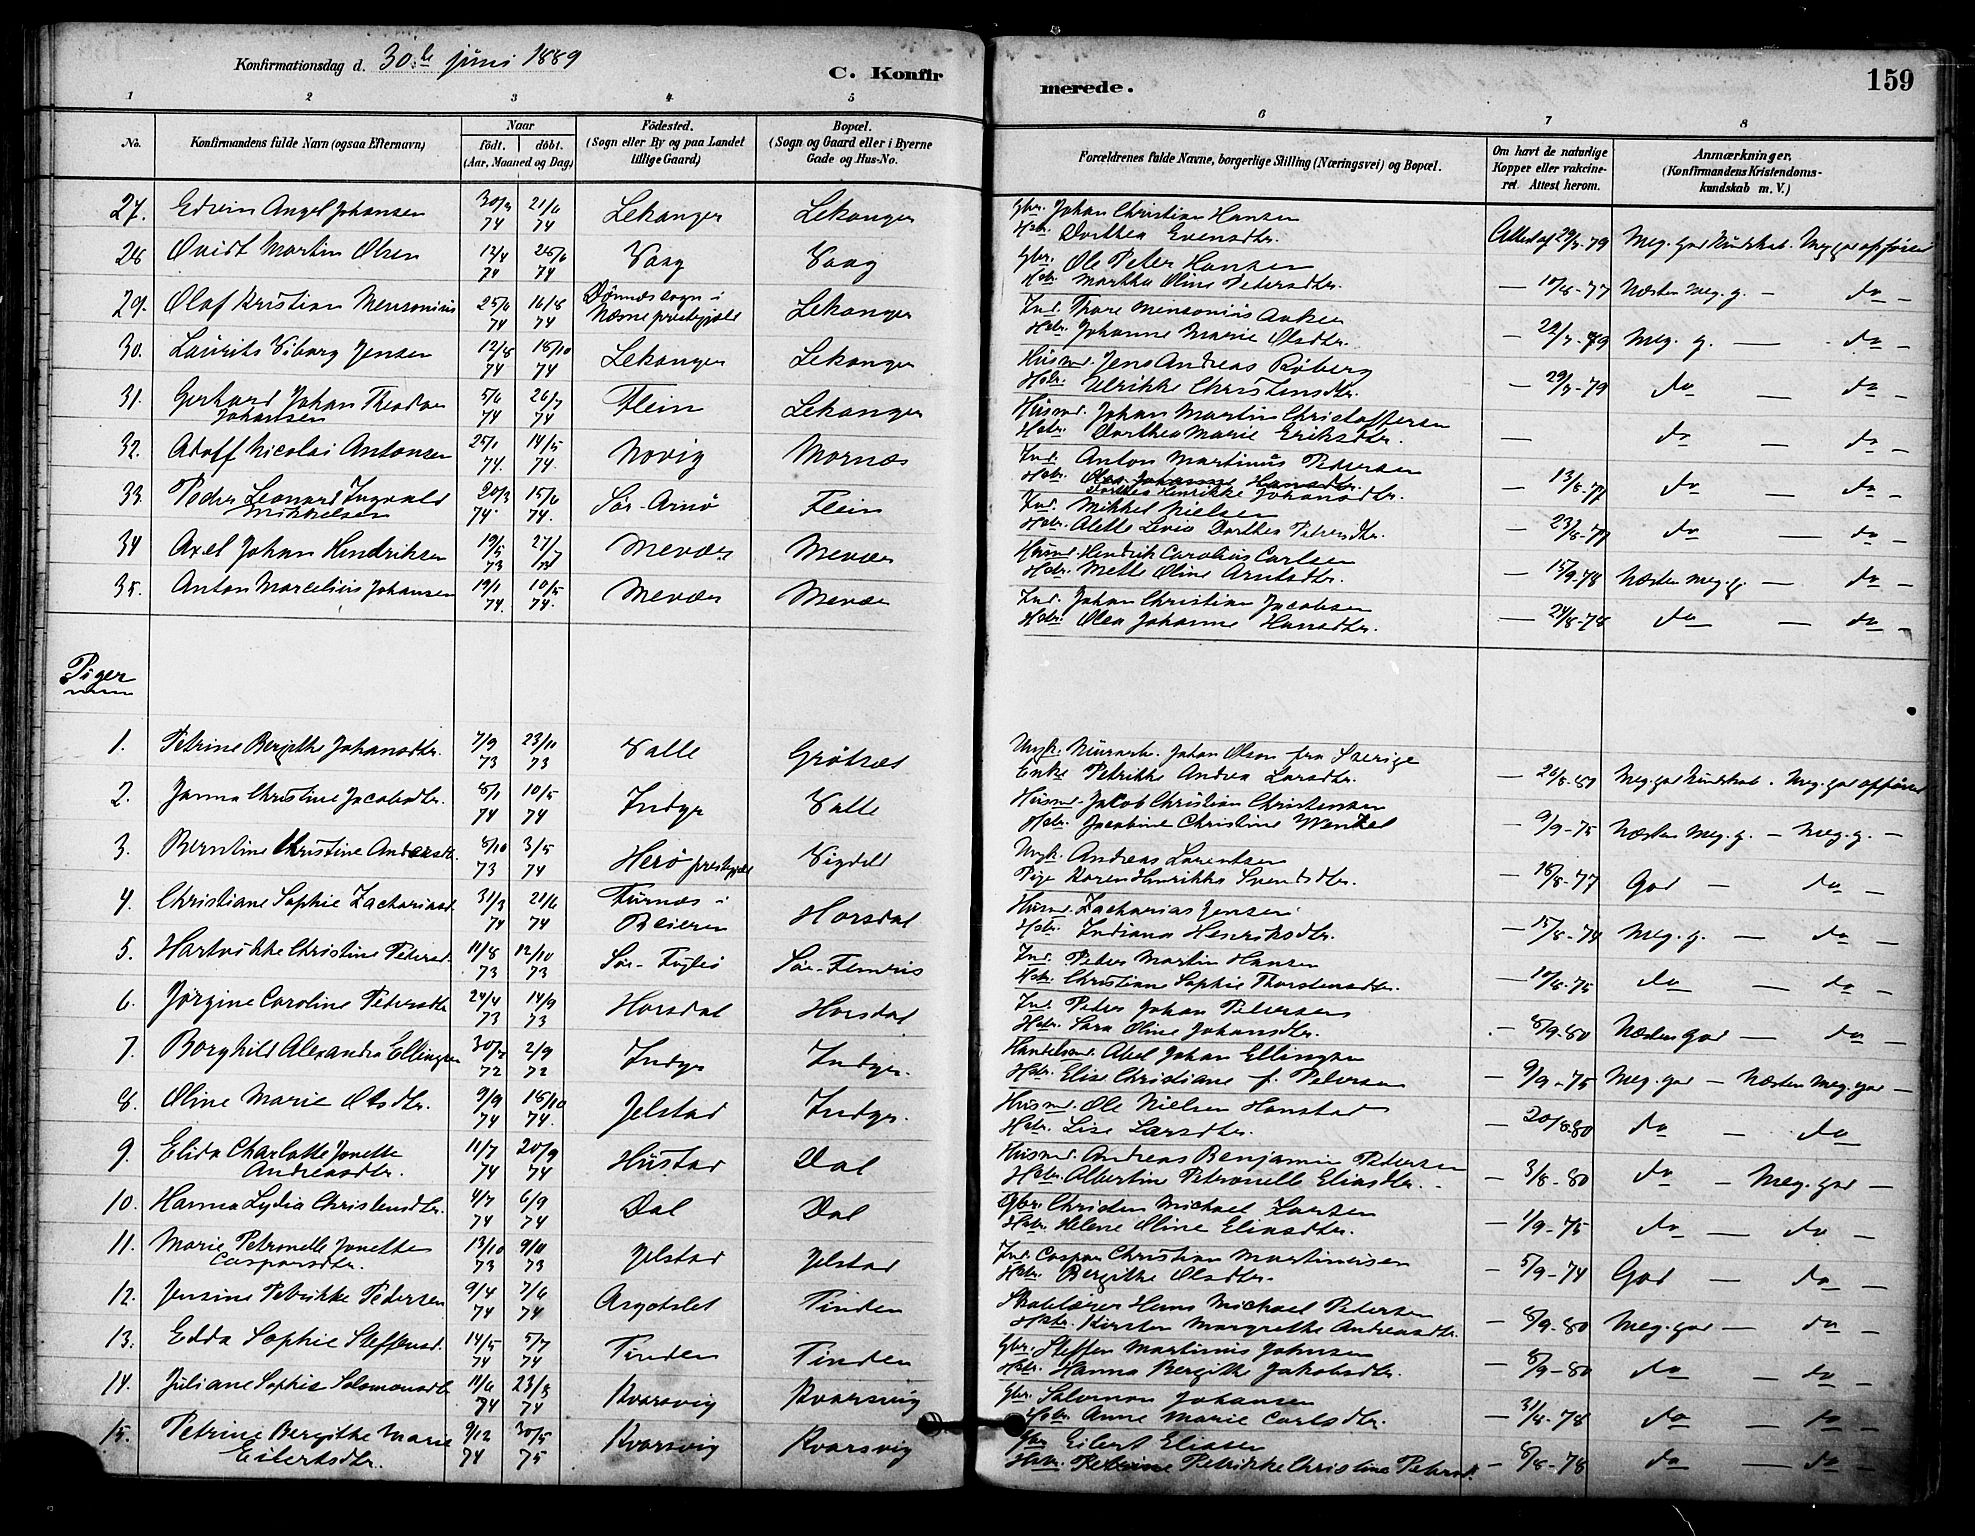 Konfirmationsdag d. 30te juni 1889
C. Konfirmerede.
159
1 2 3 4 5 6 7 8
No. Konfirmandens fulde Navn (ogsaa Efternavn) Naar födt. döbt. (Aar, Maaned og Dag) Födested. (Sogn eller By og paa Landet tillige Gaard) Bopæl. (Sogn og Gaard eller i Byerne Gade og Hus-No. Forældrenes fulde Navne, borgerlige Stilling (Næringsvei) og Bopæl. Om havt de naturlige Kopper eller vakcineret. Attest herom. Anmærkninger. (Konfirmandens Kristendomskundskab m. V.)
27. Edvin Angel Johansen 74 21/6 74 Lekanger Lekanger Gbr. Johan Christian Hansen
Hstr. Dorthea Evensdtr. Attest af 29/7-79 Meg. god Kundskab. Meg. god opførsel
28 Ovidt Martin Olsen 12/4 74 74 Vaag Vaag Gbr. Ole Peter Hansen
Hstr. Martha Oline Petersdtr. — 17/8-77 Næsten meg. g. — do —
29. Olaf Kristian Mensonius 25/6 74 16/8 74 Dønnæs sogn i Næsne prestegjæld Lekanger Ind. Thore Mensonius
Hstr. Johanne Marie Olsdtr. — 22/7-79 Meg. g. — do —
30. Laurits Viborg Jensen 12/8 74 18/10 74 Lekanger Lekanger Husmd. Jens Andreas Røberg
Hstr. Ulrikke Christensdtr. — 29/7-79 do — do —
31. Gerhard Johan Theodor Johansen 5/6 74 26/7 74 Flein Lekanger Husmd. Johan Martin Christoffersen
Hstr. Dorthea Marie Eriksdtr. — do — do —
32. Adolf Nicolai Antonsen 25/1 74. 14/5 74. Novig Mornæs Ind. Anton Martinus Pedersen
Hstr. Dorthea Henrikke Johansdtr. — 13/8-77 do — do —
33 Peder Leonard Ingvald Mikkelsen 20/3 74. 15/6 74. Sør-Arnø Flein Ind. Mikkel Nielsen
Hstr. Alette Levia Dorthea Petersdtr. — 23/8-77 do — do —
34 Axel Johan Hendriksen 19/5 73 27/7 73 Mevær Mevær Husmd. Hendrik Carolius Carlsen
Hstr. Mette Oline Arntsdtr. — 15/9-78 Næsten meg. g. — do —
35. Anton Marcelius Johansen 19/1 74. 10/5 74. Mevær Mevær Ind. Johan Christian Jacobsen
Hstr. Olea Johanne Hansdtr. — 24/8-78 do — do —
Piger
1. Petrine Bergithe Johansdtr. 7/9 73 23/10 73 Valle Grøtnæs Ungk. Murarb. Johan Olson fra Sverige
Enke Petrikke Andrea Larsdtr. — Meg. god Kundskab. Meg. god opførsel
2. Janna Christine Jacobsdtr. 8/1 74 10/5 74 Indyr Valle Husmd. Jakob Christian Christensen
Hstr. Jacobine Christine Wenkel — 9/9-75 Næsten meg. g. — Meg. g. —
3. Berntine Christine Andersdt. 8/10 73 3/5 74 Herø prestegjæld Sigdel Ungk. Andreas Lorentsen
Pige Karen Henrikke Svendsdtr. — 18/8-77 God — do —
4. Christiane Sophie Zachariasd. 31/3 74 21/6 74 Furnæs i Beieren Horsdal Husmd. Zacharias Jensen
Hstr. Indiana Henriksdtr. — 15/8-74 Meg. g. — do —
5. Hartvikke Christine Petersd. 11/8 73 12/10 73 Sør-Fugløi Sør-Fleinis Ind. Peter Martin Hansen
Hstr. Christiane Sophie Thorstensdtr. — 10/8-75 do — do —
6. Jørgine Caroline Petersdtr. 24/4 73 14/9 73 Horsdal Horsdal Ind. Peter Johan Petersen
Hstr. Sara Oline Johansdtr. — 8/9-80 Næsten god — do —
7. Borghild Alexandra Ellingsen 30/7 72 2/9 72 Indyr Indyr. Handelsmd. Abel Johan Ellingsen
Hstr. Elise Christiane f. Petersen — 9/9-75 Meg. god — Næsten meg. god —
8. Oline Marie Olsdtr. 9/9 74 18/10 74. Jelstad Indyr. Husmd. Ole Nielsen Hanstad
Hstr. Lise Larsdtr. — 20/8-80 do — do
9. Elida Charlotte Jonette Andreasdtr. 11/7 74 20/9 74 Hustad Dal Husmd. Andreas Benjamin Petersen
Hstr. Albertine Petronelle Eliasdtr. — 3/8-80 do — Meg. god —
10. Hanna Lydia Christensdtr. 4/7 74 6/9 74 Dal Dal Gbr. Christen Michael Larsen
Hstr. Helene Oline Eliasdtr. — 1/9-75 do — do
11. Marie Petronelle Jonette Caspersdtr. 13/10 73 9/11 73 Jelstad Jelstad Ind. Caspar Christian Martinusen
Hstr. Bergithe Olsdtr. — 5/9-74 God — do —
12. Jensine Petrikke Pedersen 9/4 74 7/6 74 Tinden Skolelærer Hans Michael Petersen
Hstr. Kirsten Margrethe Andreasdtr. — 8/9-80 Meg. god — do —
13. Edda Sophie Steffensd. 14/5 74 5/7 74 Tinden Tinden Gbr. Steffen Martinus Johnsen
Hstr. Hanna Bergithe Jakobsdtr. — 8/9-80 do — do —
14. Juliane Sophie Solomonsdtr. 11/6 74 23/8 74 Kvarsvig Kvarsvig Gbr. Salomon Johansen
Hstr. Anne Marie Carlsdtr. — 31/8-78 do — do —
15. Petrine Bergithe Marie Eilertsdtr. 9/12 74 30/5 75 Kvarsvig Kvarsvig Gbr. Eilert Eliasen
Hstr. Petrikke Christine Petersd. — 8/8-78 do — do —